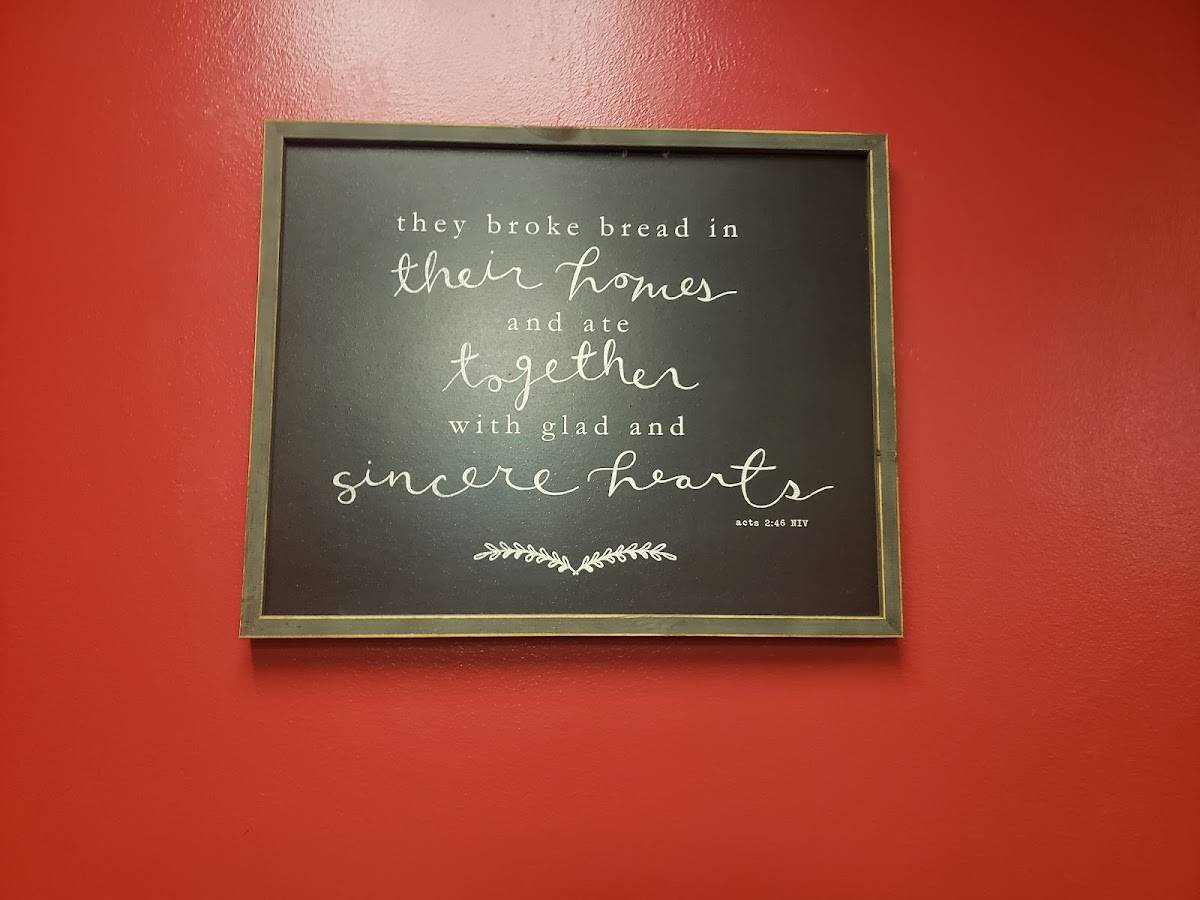 they broke bread in
their homes
and ate
together
with glad and
sincere hearts
acts 2:46 NIV